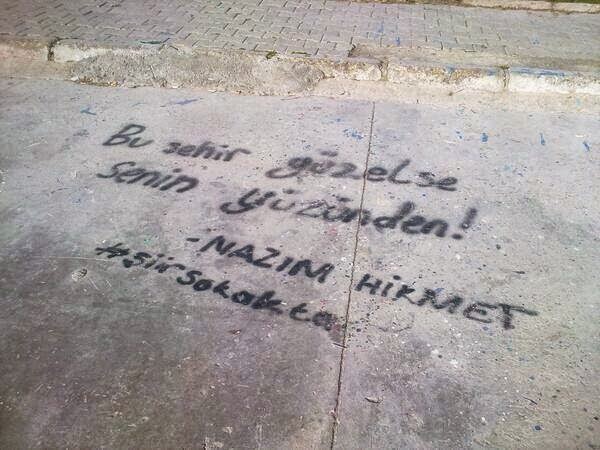 Bu şehir güzelse
Senin yüzünden!
-NAZIM HİKMET
#şiirsokakta